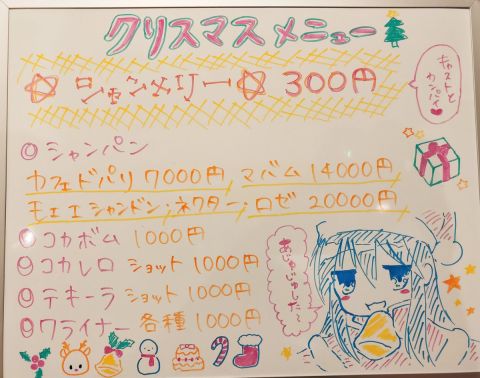 クリスマスメニュー
シャンメリー 300円
キャストと
カンパイ♥
◎シャンパン
カフェドパリ 7000円, マバム 14000円
モエエシャンドン・ネクター・ロゼ 20000円
◎コカボム 1000円
◎コカレロ ショット 1000円
◎テキーラ ショット 1000円
◎クライナー 各種 1000円